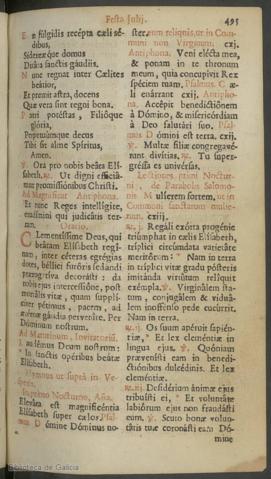 Festa Julij.
495
E n fulgidis recépta cæli sé-
dibus,
Sideréæque domus
Ditáta sanctis gáudiis.
N unc regnat inter Cælites
beátior,
Et premit astra, docens
Quæ vera sint regni bona.
P atri potéstas, Filióque
glória,
Perpetuúmque decus
Tibi sit alme Spíritus,
Amen.
℣. Ora pro nobis beáta Elí-
sabeth. ℟. Ut digni efficiá-
mur promissiónibus Christi.
Ad Magnificat Antiphona.
Et nunc Reges intellígite,
erudímini qui judicátis ter-
ram.
Oratio.
Clementíssime Deus, qui
beátam Elísabeth regí-
nam, inter céteras egrégias
dotes, béllici furóris sedandi
prærogatíva decorásti : da
nobis ejus intercessióne, post
mortális vitæ, quam supplí-
citer pétimus, pacem, ad
ætérna gáudia perveníre. Per
Dóminum nostrum.
Ad Matutinum, Invitatoriũ.
L audémus Deum nostrum:
* In sanctis opéribus beátæ
Elísabeth.
Hymnus ut suprà in Ve-
speris.
In primo Nocturno, Aña.
Eleváta est magnificéntia
Elísabeth super cælos. Psal-
mus. D ómine Dóminus no-
ster, cum reliquis, ut in Com-
muni non Virginum. cxj.
Antiphona. Veni elécta mea,
& ponam in te thronum
meum, quia concupívit Rex
spéciem tuam. Psalmus. C æ-
li enárrant cxij. Antipho-
na. Accépit benedictiónem
à Dómino, & misericórdiam
à Deo salutári suo. Psal-
mus. D ómini est terra. cxij.
℣. Multæ filiæ congregavé-
runt divítias. ℟. Tu super-
gréssa es univérsas.
Lectiones primi Noctur-
ni, de Parabolis Salomo-
nis M ulíerem fortem, ut in
Communi sanctarum mulie-
rum, cxiij.
℟. j. Regáli exórta progénie
triúmphat in cælis Elísabeth,
tríplici circúmdata varietáte
meritórum : * Nam in terra
in tríplici vitæ gradu pósteris
imitánda virtútum relíquit
exémpla. ℣. Virginálem sta-
tum, conjugálem & viduá-
lem inoffénso pede cucúrrit.
Nam in terra.
℟. ij. Os suum apéruit sapién-
tiæ, * Et lex cleméntiæ in
lingua ejus. ℣. Quóniam
prævenísti eam in benedi-
ctiónibus dulcédinis. Et lex
cleméntiæ.
℟. iij. Desidérium ánimæ ejus
tribuísti ei, * Et voluntáte
labiórum ejus non fraudásti
eum. ℣. Scuto bonæ volun-
tátis tuæ coronásti eam Dó-
mine
Biblioteca de Galicia